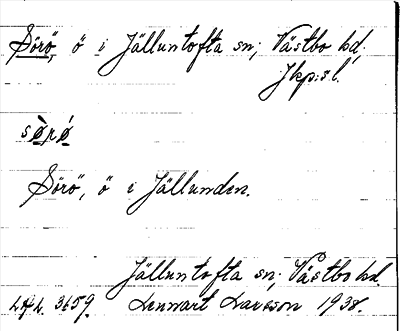 Sörö, ö i Jälluntofta sn; Västbo hd;
Jkp:s l.
sø̀rǿ
Sörö, ö i Jällunden.
Jälluntofta sn; Västbo hd.
LAL. 3659. Lennart Larsson 1938.